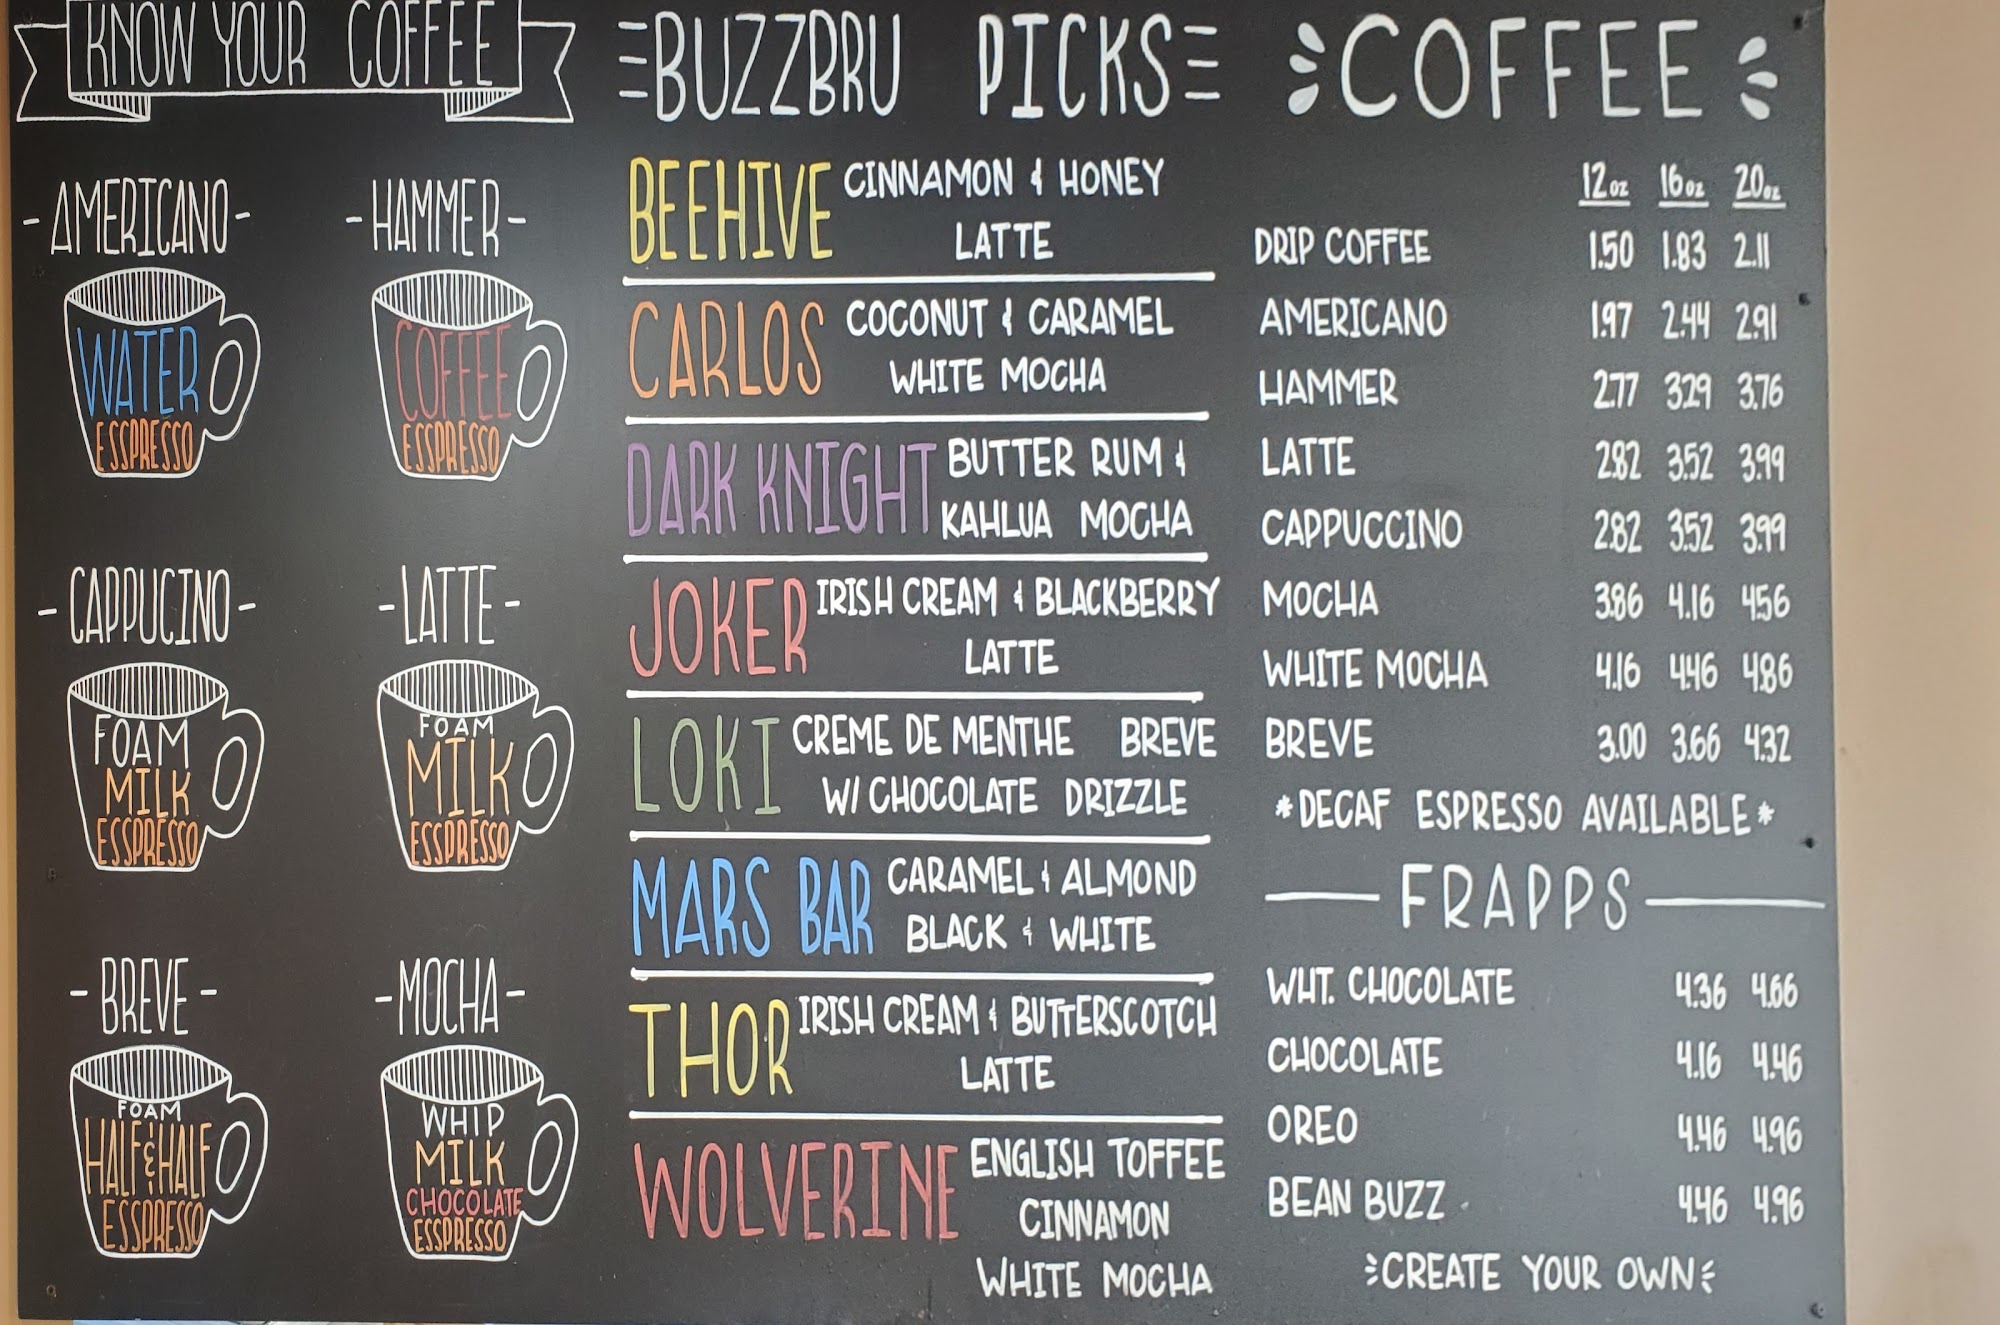 KNOW YOUR COFFEE
- AMERICANO -
WATER
ESSPRESSO
- HAMMER -
COFFEE
ESSPRESSO
- CAPPUCINO -
FOAM
MILK
ESSPRESSO
- LATTE -
FOAM
MILK
ESSPRESSO
- BREVE -
FOAM
HALF & HALF
ESSPRESSO
- MOCHA -
WHIP
MILK
CHOCOLATE
ESSPRESSO
BUZZBRU PICKS
BEEHIVE CINNAMON & HONEY
LATTE
CARLOS COCONUT & CARAMEL
WHITE MOCHA
DARK KNIGHT BUTTER RUM &
KAHLUA MOCHA
JOKER IRISH CREAM & BLACKBERRY
LATTE
LOKI CREME DE MENTHE BREVE
W/ CHOCOLATE DRIZZLE
MARS BAR CARAMEL & ALMOND
BLACK & WHITE
THOR IRISH CREAM & BUTTERSCOTCH
LATTE
WOLVERINE ENGLISH TOFFEE
CINNAMON
WHITE MOCHA
COFFEE
12oz 16oz 20oz
DRIP COFFEE 1.50 1.83 2.11
AMERICANO 1.97 2.44 2.91
HAMMER 2.77 3.29 3.76
LATTE 2.82 3.52 3.99
CAPPUCCINO 2.82 3.52 3.99
MOCHA 3.86 4.16 4.56
WHITE MOCHA 4.16 4.46 4.86
BREVE 3.00 3.66 4.32
*DECAF ESPRESSO AVAILABLE*
FRAPPS
WHT. CHOCOLATE 4.36 4.66
CHOCOLATE 4.16 4.46
OREO 4.46 4.96
BEAN BUZZ 4.46 4.96
CREATE YOUR OWN